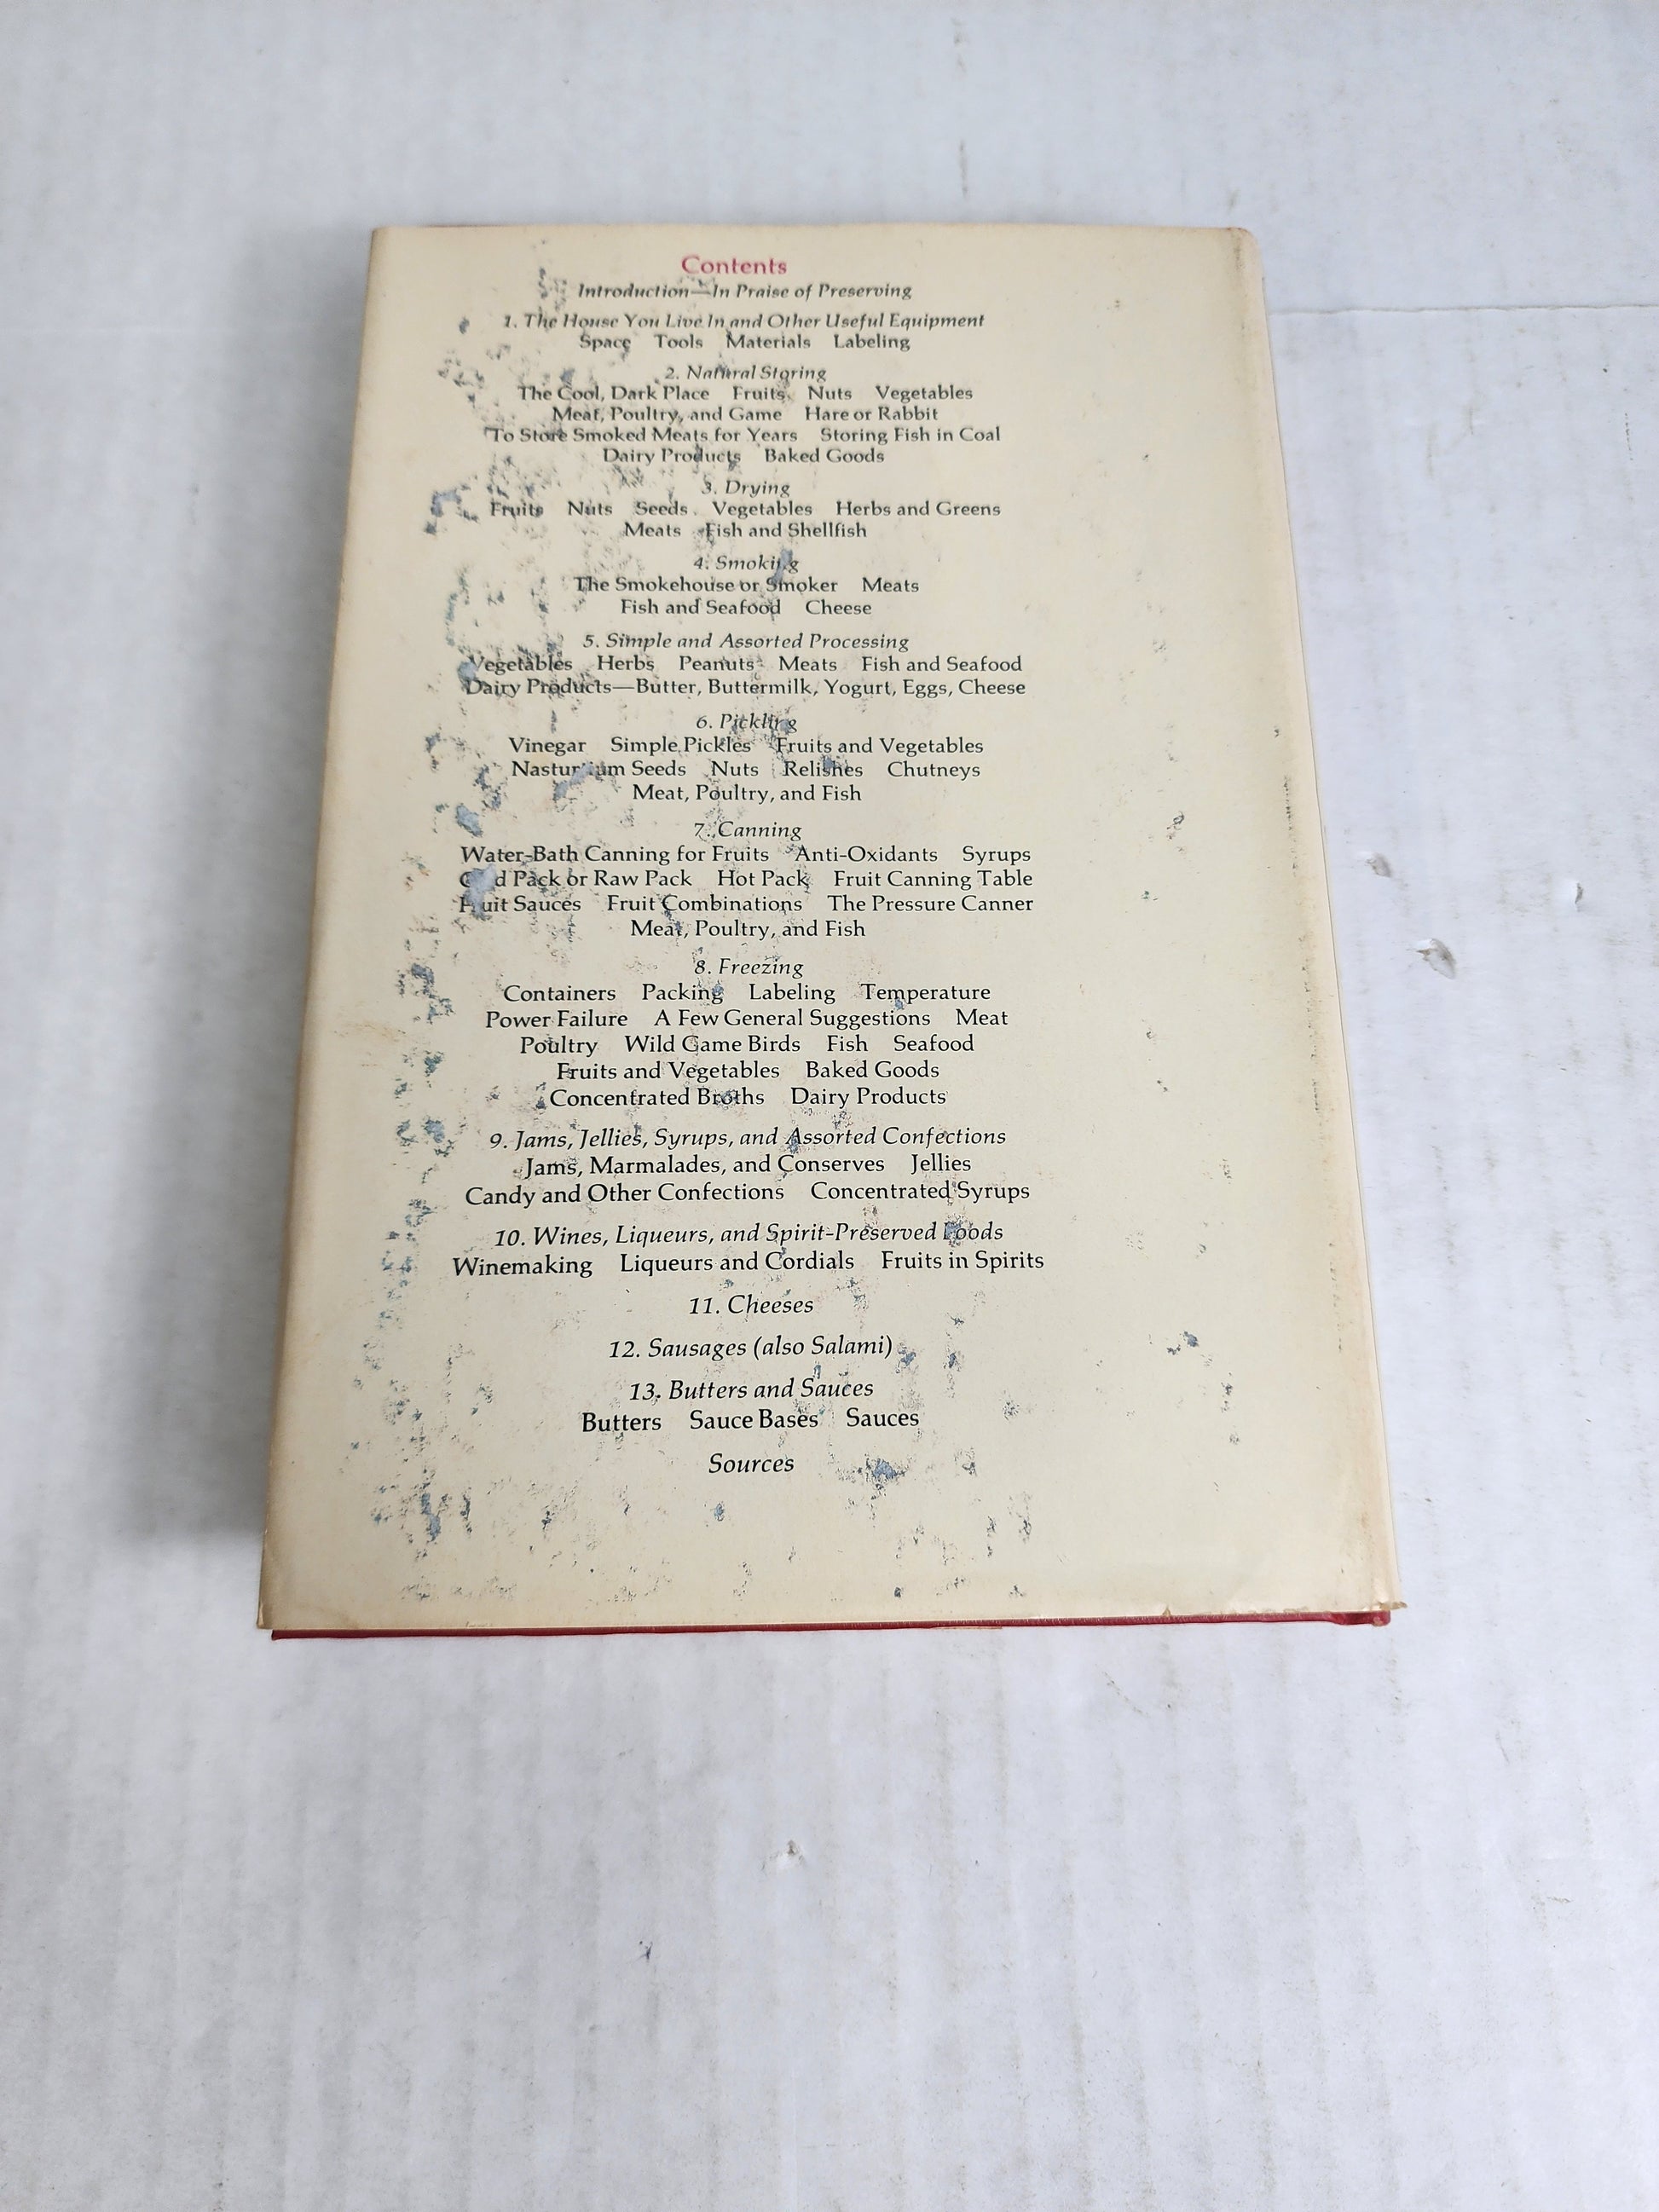 Contents
Introduction—In Praise of Preserving
1. The House You Live In and Other Useful Equipment
Space Tools Materials Labeling
2. Natural Storing
The Cool, Dark Place Fruits Nuts Vegetables
Meat, Poultry, and Game Hare or Rabbit
To Store Smoked Meats for Years Storing Fish in Coal
Dairy Products Baked Goods
3. Drying
Fruits Nuts Seeds Vegetables Herbs and Greens
Meats Fish and Shellfish
4. Smoking
The Smokehouse or Smoker Meats
Fish and Seafood Cheese
5. Simple and Assorted Processing
Vegetables Herbs Peanuts Meats Fish and Seafood
Dairy Products—Butter, Buttermilk, Yogurt, Eggs, Cheese
6. Pickling
Vinegar Simple Pickles Fruits and Vegetables
Nasturtium Seeds Nuts Relishes Chutneys
Meat, Poultry, and Fish
7. Canning
Water-Bath Canning for Fruits Anti-Oxidants Syrups
Cold Pack or Raw Pack Hot Pack Fruit Canning Table
Fruit Sauces Fruit Combinations The Pressure Canner
Meat, Poultry, and Fish
8. Freezing
Containers Packing Labeling Temperature
Power Failure A Few General Suggestions Meat
Poultry Wild Game Birds Fish Seafood
Fruits and Vegetables Baked Goods
Concentrated Broths Dairy Products
9. Jams, Jellies, Syrups, and Assorted Confections
Jams, Marmalades, and Conserves Jellies
Candy and Other Confections Concentrated Syrups
10. Wines, Liqueurs, and Spirit-Preserved Foods
Winemaking Liqueurs and Cordials Fruits in Spirits
11. Cheeses
12. Sausages (also Salami)
13. Butters and Sauces
Butters Sauce Bases Sauces
Sources